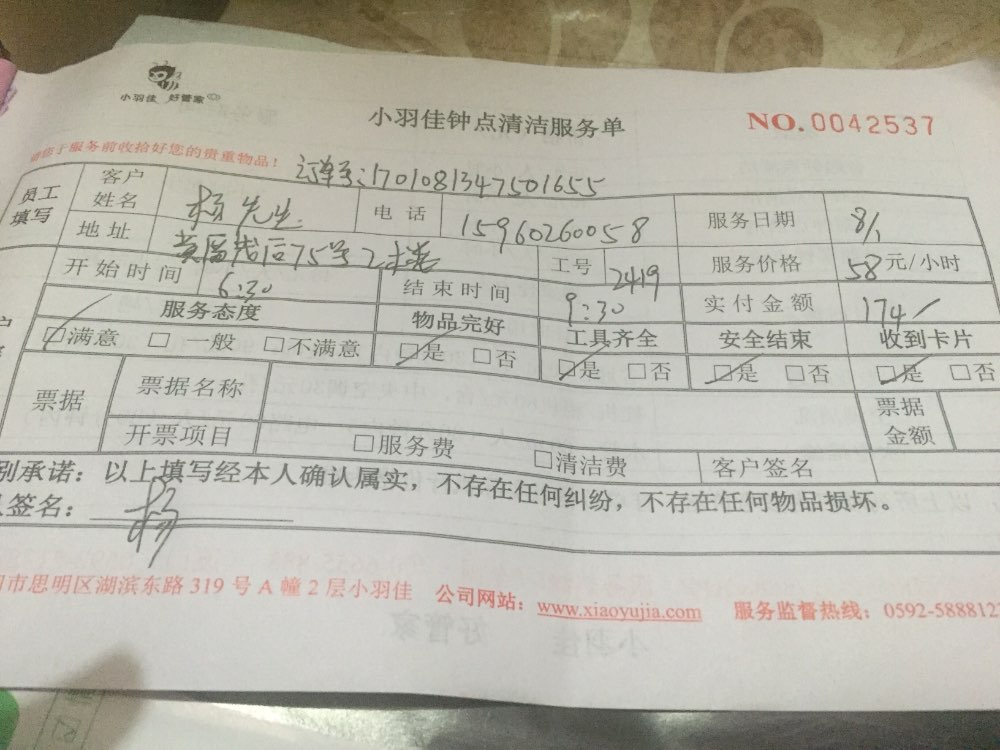 小羽佳 好管家
小羽佳钟点清洁服务单
NO.0042537
请您于服务前收拾好您的贵重物品！
订单号:1701081347501655
员工填写 客户姓名 杨先生 电话 15960260058 服务日期 8/1
地址 后75号2楼 工号 2419 服务价格 58 元/小时
开始时间 6:30 结束时间 9:30 实付金额 174
服务态度 物品完好 工具齐全 安全结束 收到卡片
☑满意 □一般 □不满意 ☑是 □否 ☑是 □否 ☑是 □否 ☑是 □否
票据 票据名称 票据金额
开票项目 □服务费 □清洁费 客户签名
别承诺：以上填写经本人确认属实，不存在任何纠纷，不存在任何物品损坏。
签名： 杨
市思明区湖滨东路 319 号 A 幢 2 层小羽佳 公司网站：www.xiaoyujia.com 服务监督热线：0592-5888127